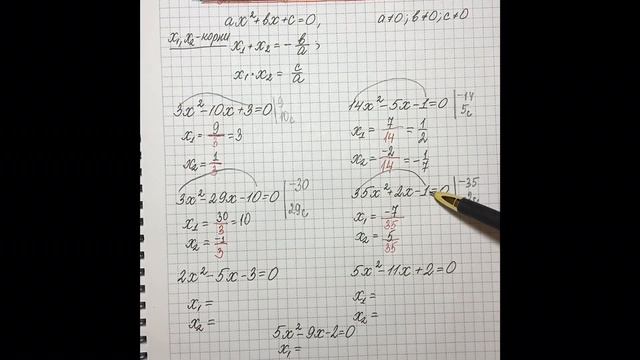 ax²+bx+c=0, a≠0; b≠0; c≠0
x₁, x₂-корни
x₁+x₂=-b/a;
x₁·x₂=c/a
3x²-10x+3=0 | 9
10с
x₁=9/3=3
x₂=1/3
14x²-5x-1=0 | -14
5с
x₁=7/14=1/2
x₂=-2/14=-1/7
3x²-29x-10=0 | -30
29с
x₁=30/3=10
x₂=-1/3
35x²+2x-1=0 | -35
x₁=-7/35
x₂=5/35
2x²-5x-3=0
x₁=
x₂=
5x²-11x+2=0
x₁=
x₂=
5x²-9x-2=0
x₁=